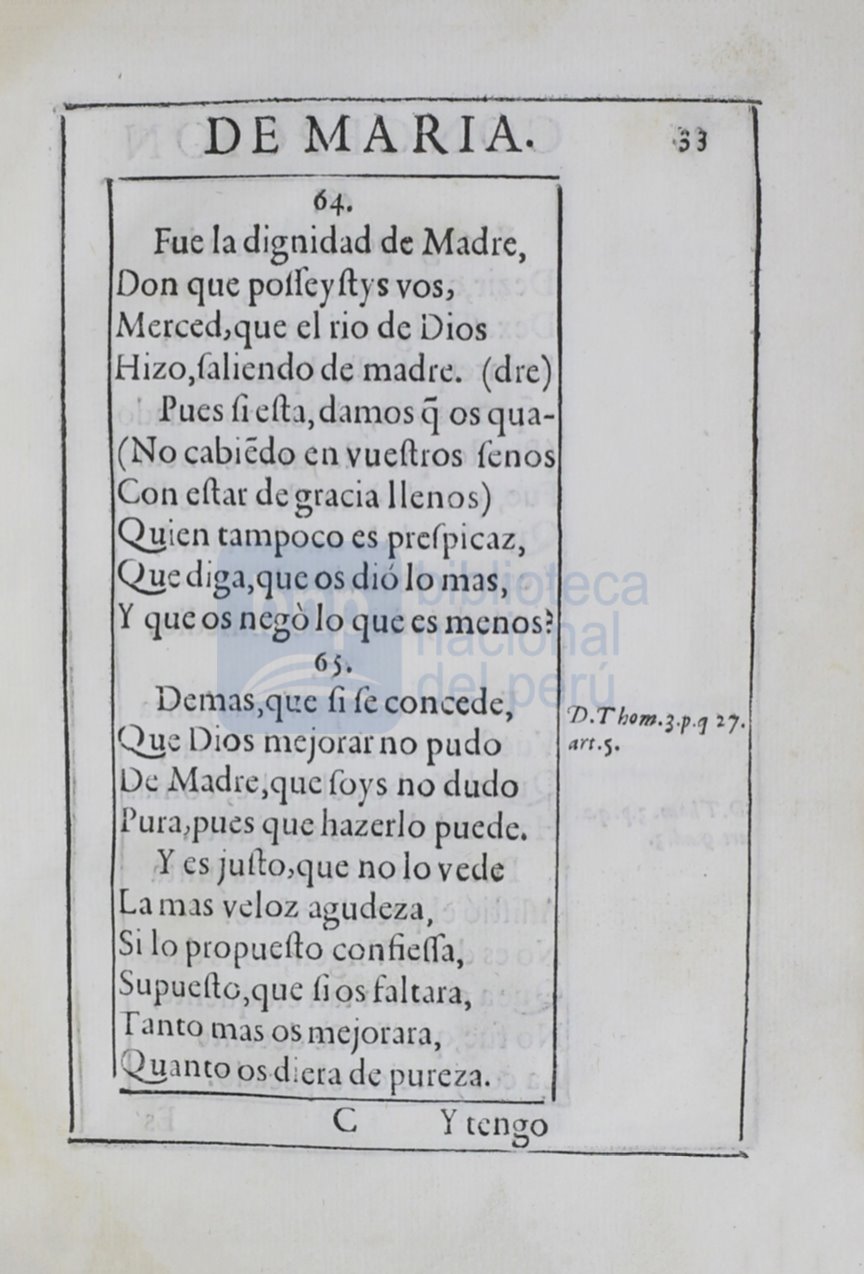 DE MARIA. 33
64.
Fue la dignidad de Madre,
Don que poſſeyſtys vos,
Merced,que el rio de Dios
Hizo,ſaliendo de madre. (dre)
Pues ſi eſta, damos q̃ os qua-
(No cabiẽdo en vueſtros ſenos
Con eſtar de gracia llenos)
Quien tampoco es preſpicaz,
Que diga,que os dió lo mas,
Y que os negò lo que es menos?
65.
Demas,que ſi ſe concede,
Que Dios mejorar no pudo
De Madre,que ſoys no dudo
Pura,pues que hazerlo puede.
Y es juſto,que no lo vede
La mas veloz agudeza,
Si lo propueſto confieſſa,
Supueſto,que ſi os faltara,
Tanto mas os mejorara,
Quanto os diera de pureza.
D.Thom.3.p.q 27.
art.5.
C Y tengo
bnp biblioteca
nacional
del perú